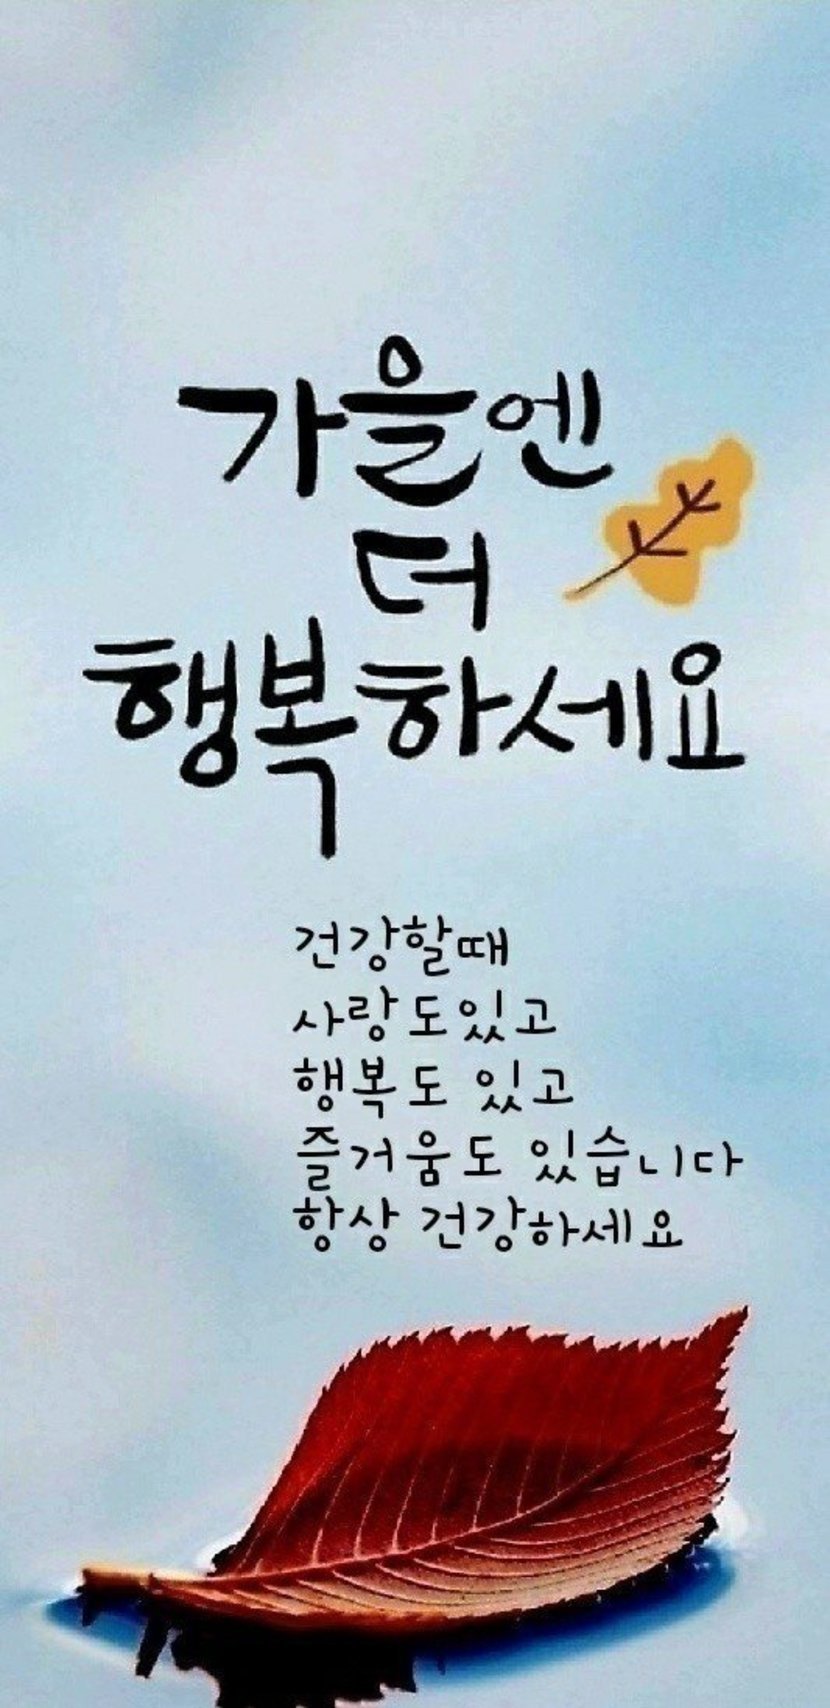 가을엔
더
행복하세요
건강할때
사랑도있고
행복도 있고
즐거움도 있습니다
항상 건강하세요